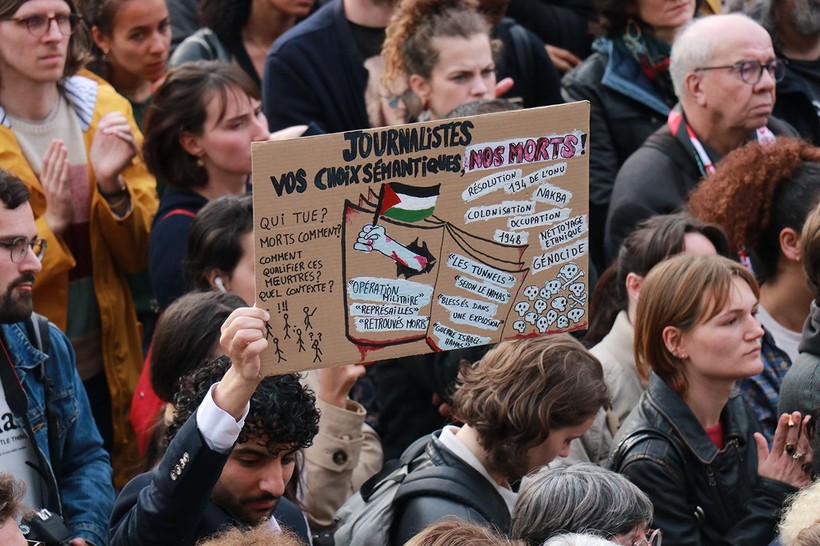 JOURNALISTES
VOS CHOIX SÉMANTIQUES, NOS MORTS!
QUI TUE?
MORTS COMMENT?
COMMENT
QUALIFIER CES
MEURTRES?
QUEL CONTEXTE?
!!!
"OPÉRATION
MILITAIRE"
"REPRÉSAILLES"
"RETROUVÉS MORTS"
"LES TUNNELS"
"SELON LE HAMAS"
"BLESSÉS DANS
UNE EXPLOSION"
"GUERRE ISRAEL-
HAMAS"
RÉSOLUTION
194 DE L'ONU
NAKBA
COLONISATION
OCCUPATION
1948
NETTOYAGE
ETHNIQUE
GÉNOCIDE